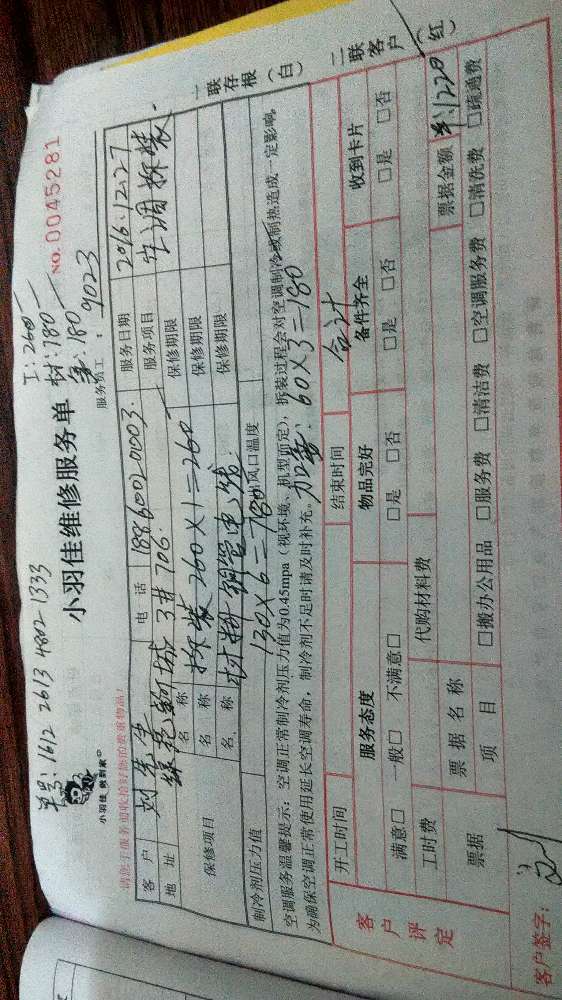 单号: 1612 2613 4802 1333
工: 260
材: 180
氟: 180
小羽佳 做到家
小羽佳维修服务单
NO. 0045281
请您于服务前收拾好您的贵重物品!
服务员工: 9023
客户 刘先生 电话 18860020003 服务日期 2016.12.27
地址 绿苑新城 3# 706 服务项目 空调拆装
保修项目
名称 拆装 260×1=260 保修期限
名称 保修期限
名称 材料 铜管电线 保修期限
130×6=780
制冷剂压力值 出风口温度
空调服务温馨提示: 空调正常制冷剂压力值为0.45mpa (视环境、机型而定), 拆装过程会对空调制冷或制热造成一定影响。
为确保空调正常使用延长空调寿命, 制冷剂不足时请及时补充。
加氟: 60×3=180
合计
开工时间 结束时间
客户评定
服务态度 物品完好 备件齐全 收到卡片
满意□ 一般□ 不满意□ □是 □否 □是 □否 □是 □否
工时费 代购材料费
票据 票据名称 票据金额 ¥:1220
项目 □搬办公用品 □服务费 □清洁费 □空调服务费 □清洗费 □疏通费
客户签字:
一联存根(白) 二联客户(红)